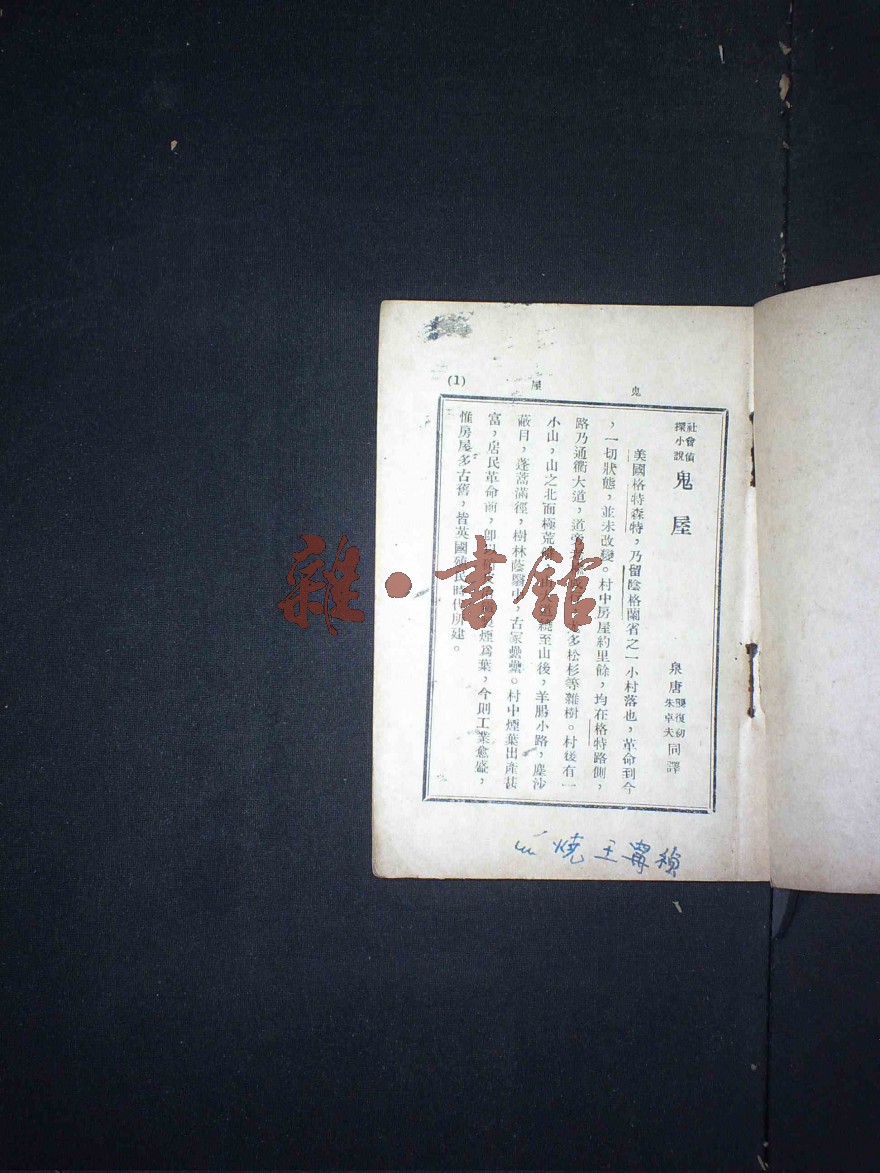 鬼屋 (1)
社會偵探小說 鬼屋
泉唐 龔復初 朱卓夫 同譯
美國格特森特，乃留陰格蘭省之一小村落也，革命到今
，一切狀態，並未改變。村中房屋約里餘，均在格特路側，
路乃通衢大道，道旁 多松杉等雜樹。村後有一
小山，山之北面極荒 繞至山後，羊腸小路，塵沙
蔽日，蓬蒿滿徑，樹林蔭翳中，古冢纍纍。村中煙葉出產甚
富，居民革命前，卽 煙爲業，今則工業愈盛，
惟房屋多古舊，皆英國殖民時代所建。
燒王
雜·書館